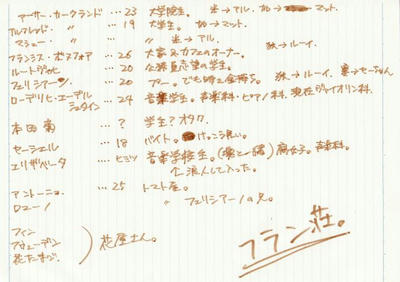 アーサー・カークランド …23 大学院生。 米→アル. 加→マット.
アルフレッド・ 〃 …19 大学生。 加→マット.
マシュー・ 〃 〃 米→アル.
フランシス・ボヌフォア …26 大家&カフェのオーナー。
ルートヴィヒ …20 公務員志望の学生。 独→ルーイ.
フェリシアーノ …20 フリーター。でも時々金持ち。 独→ルーイ. 墺→
ローデリヒ・エーデルシュタイン …24 音楽学生。 ピアノ科. 現在ヴァイオリン科.
本田菊 …? 学生?オタク.
セーシェル …18 バイト。
エリザベータ …ヒミツ 音楽学校生。 腐女子.
浪人して入った。
アントーニョ …25 トマト屋。
ロマーノ フェリシアーノの兄。
フィン
スウェーデン
花たまご. ) 花屋さん。
フラン荘。